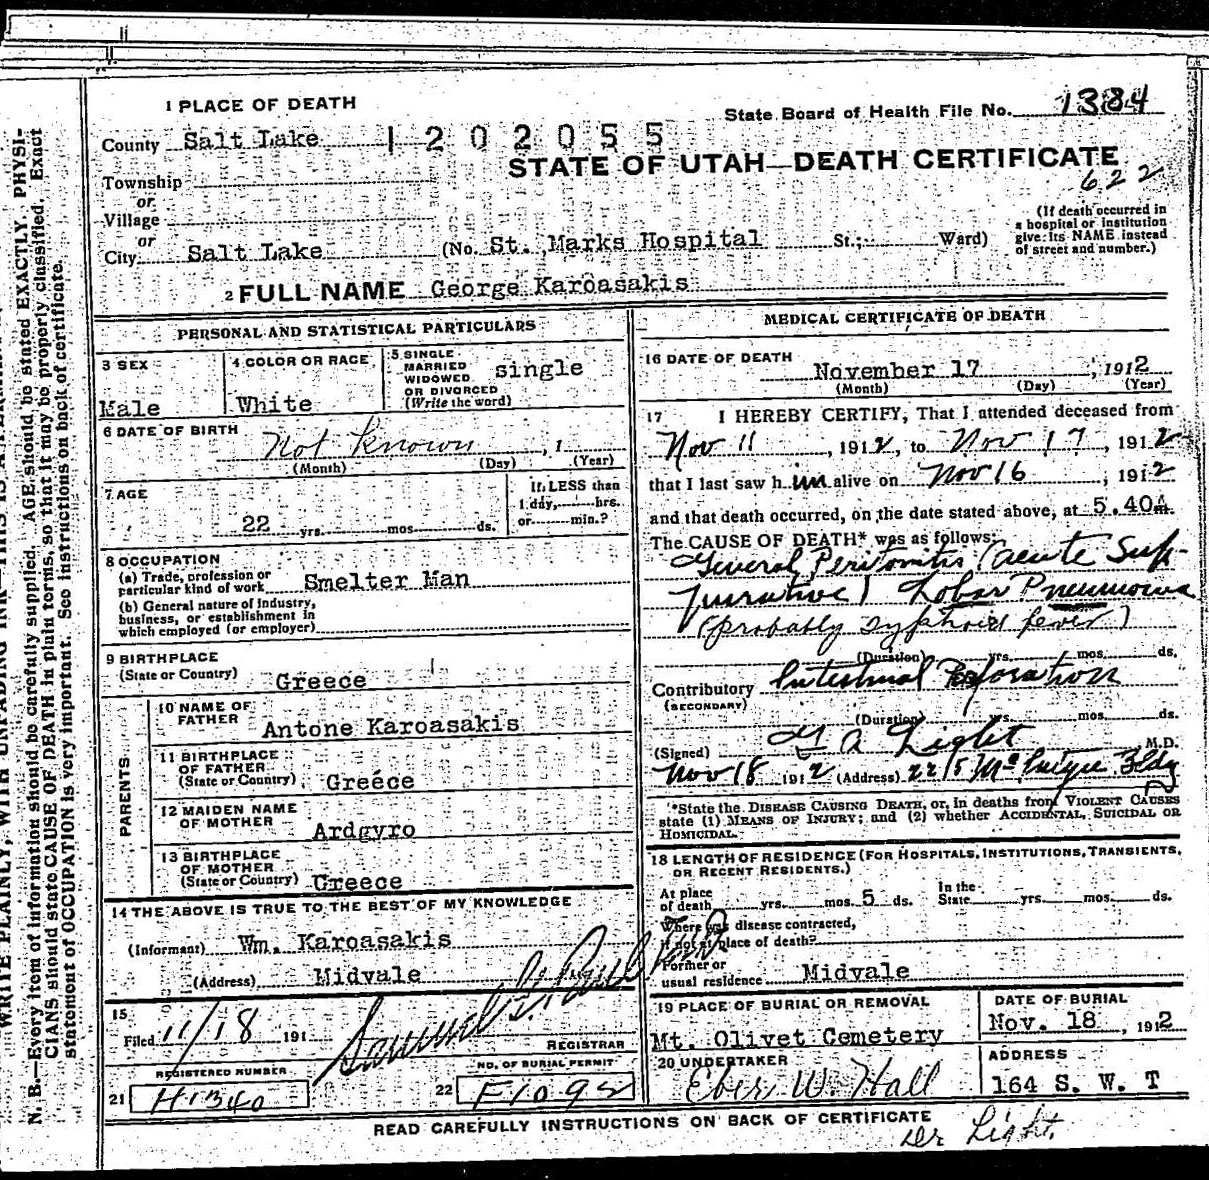 1 PLACE OF DEATH
State Board of Health File No. 1384
County Salt Lake 1202055
STATE OF UTAH—DEATH CERTIFICATE
622
Township
or
Village
or
City Salt Lake (No. St. Marks Hospital St.; Ward)
(If death occurred in
a hospital or institution
give its NAME instead
of street and number.)
2 FULL NAME George Karoasakis
PERSONAL AND STATISTICAL PARTICULARS
3 SEX
Male
4 COLOR OR RACE
White
5 SINGLE
MARRIED
WIDOWED
OR DIVORCED
(Write the word)
single
6 DATE OF BIRTH
Not known, 1
(Month) (Day) (Year)
7 AGE
22 yrs. mos. ds.
If LESS than
1 day, hrs.
or min.?
8 OCCUPATION
(a) Trade, profession or
particular kind of work Smelter Man
(b) General nature of industry,
business, or establishment in
which employed (or employer)
9 BIRTHPLACE
(State or Country) Greece
PARENTS
10 NAME OF
FATHER Antone Karoasakis
11 BIRTHPLACE
OF FATHER
(State or Country) Greece
12 MAIDEN NAME
OF MOTHER Ardgyro
13 BIRTHPLACE
OF MOTHER
(State or Country) Greece
14 THE ABOVE IS TRUE TO THE BEST OF MY KNOWLEDGE
(Informant) Wm. Karoasakis
(Address) Midvale
15
Filed 11/18 191
Samuel G. Paul
REGISTRAR
REGISTERED NUMBER
21 H1340
NO. OF BURIAL PERMIT
22 F1092
MEDICAL CERTIFICATE OF DEATH
16 DATE OF DEATH
November 17, 1912
(Month) (Day) (Year)
17 I HEREBY CERTIFY, That I attended deceased from
Nov 11, 1912, to Nov 17, 1912
that I last saw him alive on Nov 16, 1912
and that death occurred, on the date stated above, at 5.40A.
The CAUSE OF DEATH* was as follows:
General Peritonitis (acute Sup-
purative) Lobar Pneumonia
(probably typhoid fever)
(Duration) yrs. mos. ds.
Contributory Intestinal Perforation
(SECONDARY)
(Duration) yrs. mos. ds.
(Signed) Light M.D.
Nov 18 1912 (Address) McIntyre Bldg
*State the DISEASE CAUSING DEATH, or, in deaths from VIOLENT CAUSES
state (1) MEANS OF INJURY; and (2) whether ACCIDENTAL, SUICIDAL OR
HOMICIDAL.
18 LENGTH OF RESIDENCE (FOR HOSPITALS, INSTITUTIONS, TRANSIENTS,
OR RECENT RESIDENTS.)
At place
of death yrs. mos. 5 ds.
In the
State yrs. mos. ds.
Where was disease contracted,
if not at place of death?
Former or
usual residence Midvale
19 PLACE OF BURIAL OR REMOVAL
Mt. Olivet Cemetery
DATE OF BURIAL
Nov. 18, 1912
20 UNDERTAKER
Eber W. Hall
ADDRESS
164 S. W. T
READ CAREFULLY INSTRUCTIONS ON BACK OF CERTIFICATE
Dr Light.
WRITE PLAINLY, WITH UNFADING INK—THIS IS A
N. B.—Every item of information should be carefully supplied. AGE should be stated EXACTLY. PHYSI-
CIANS should state CAUSE OF DEATH in plain terms, so that it may be properly classified. Exact
statement of OCCUPATION is very important. See instructions on back of certificate.